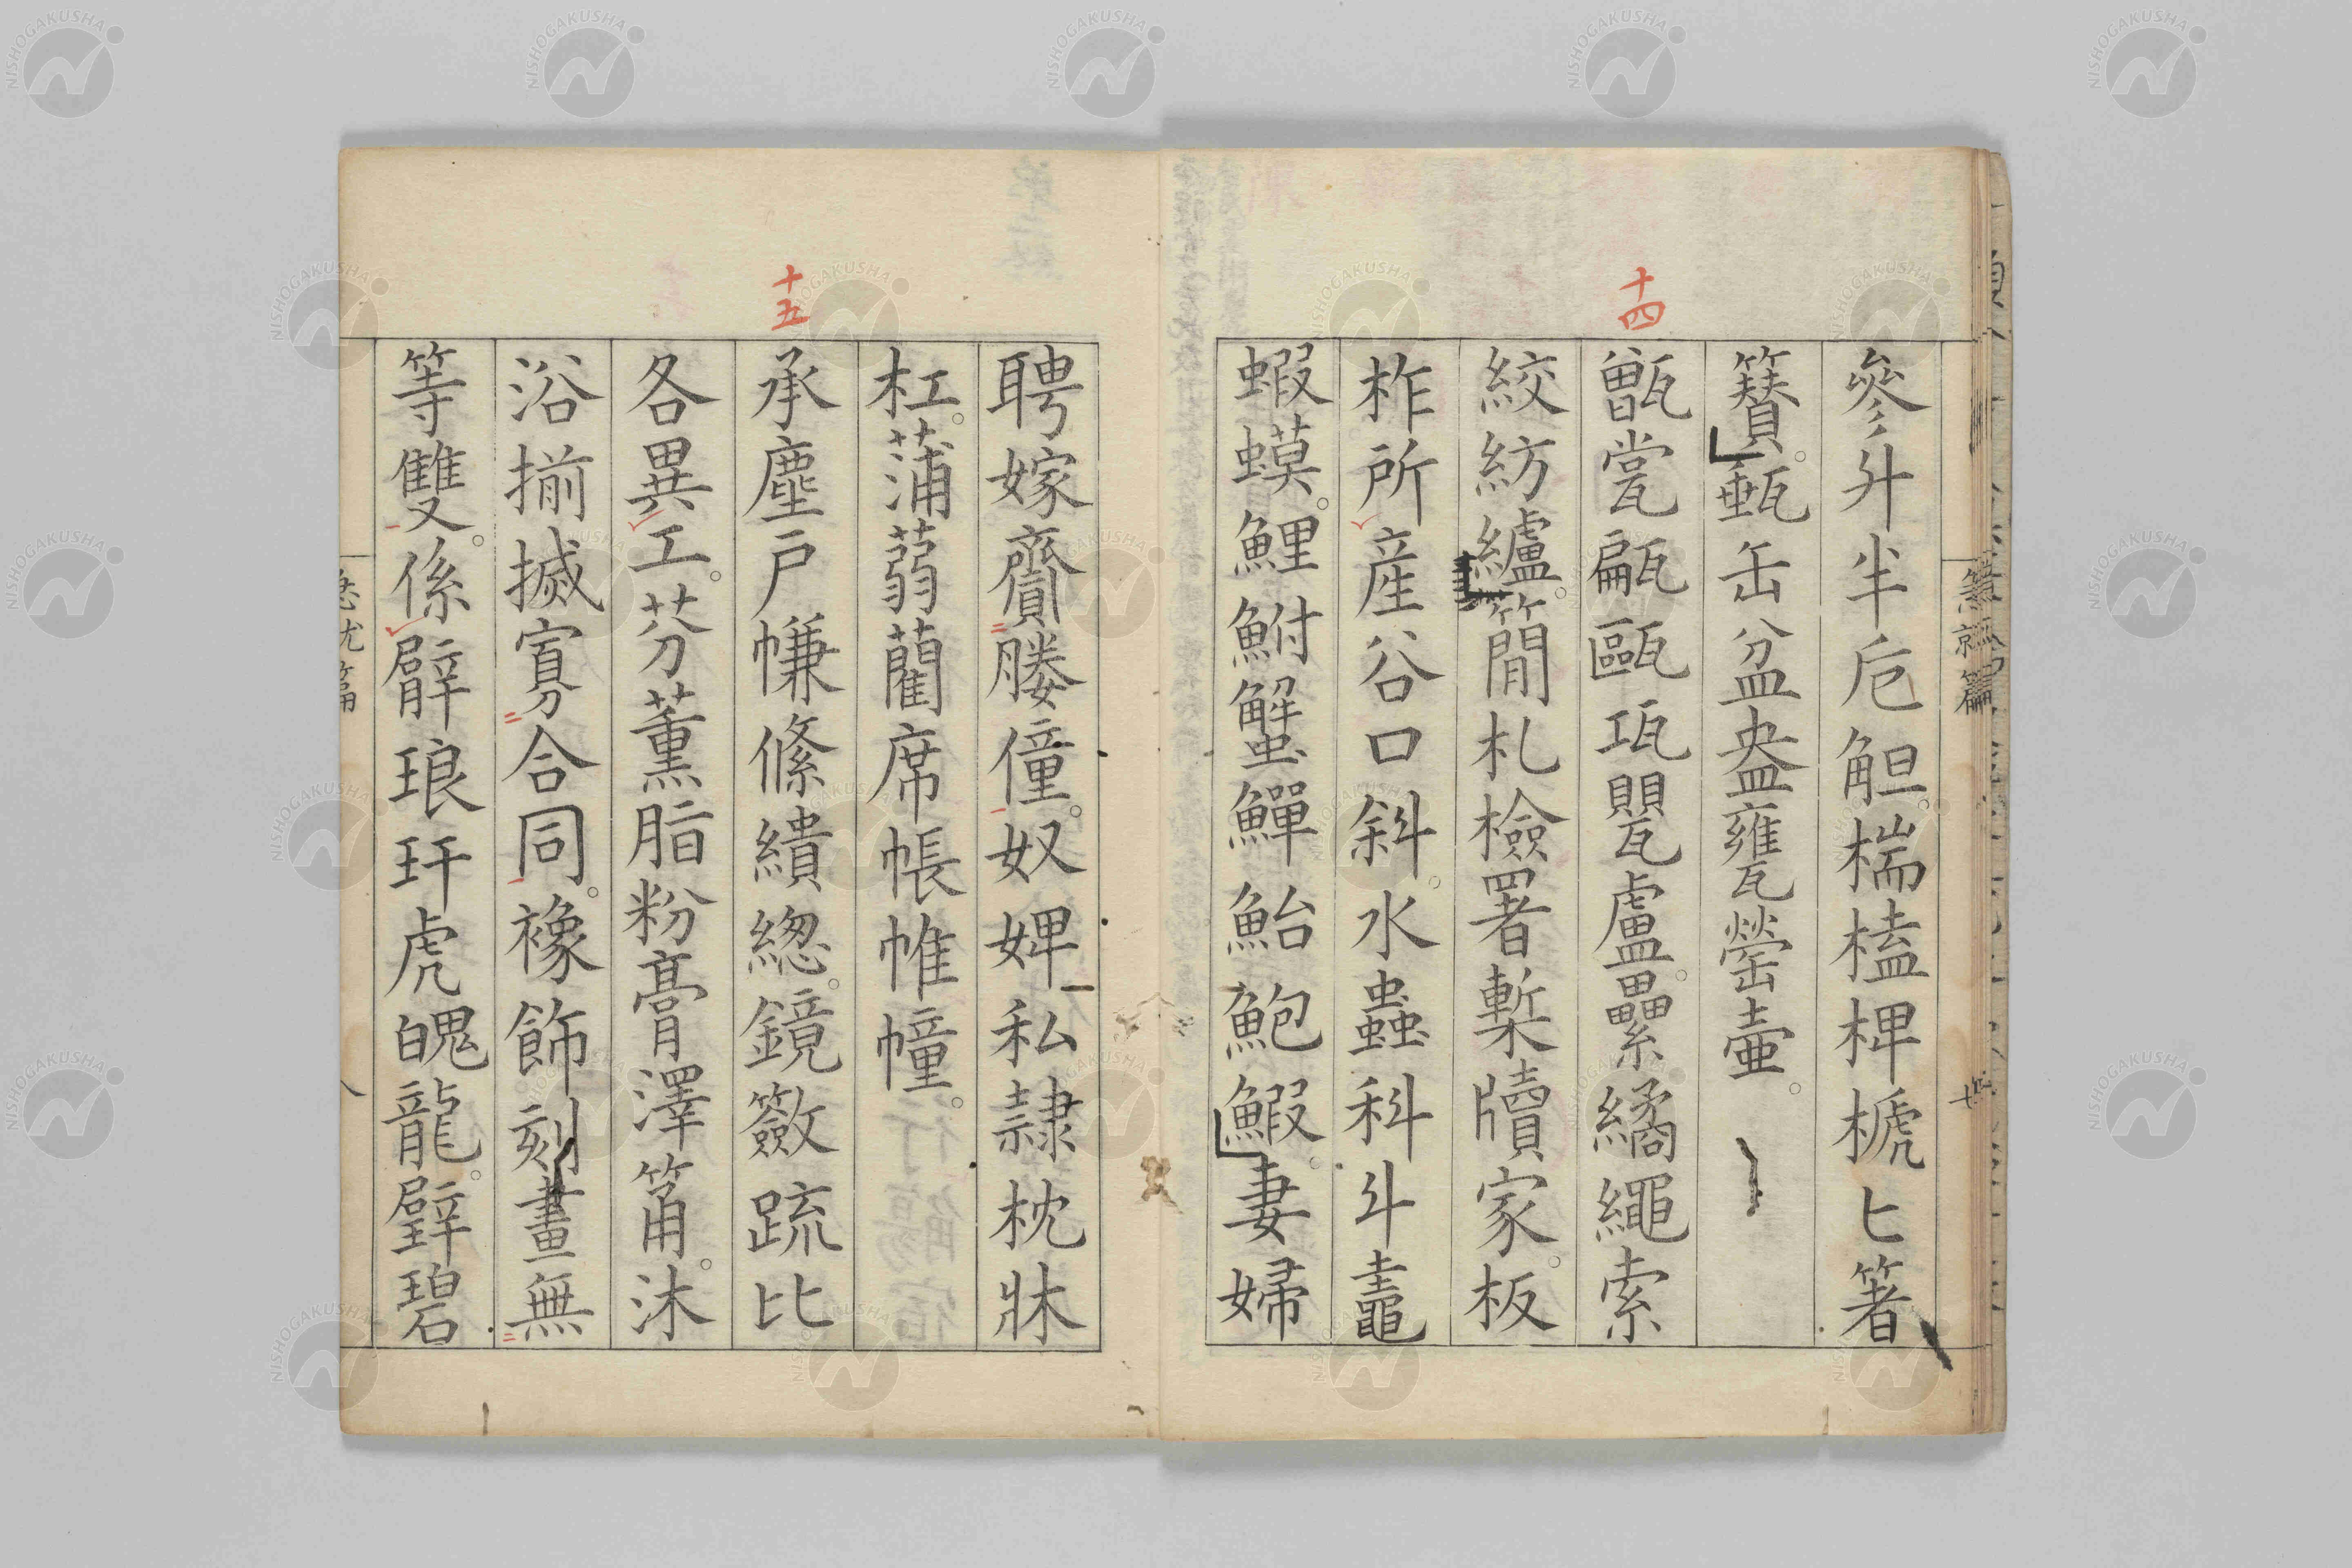 參升半卮觛。椯榼椑榹匕箸
籫。甀缶盆盎甕罃壺。
十四
甑甞㼐甌瓨甖盧。纍繘繩索
絞紡纑。簡札檢署槧牘家。板
柞所產谷口斜。水蟲科斗䵷
蝦蟆。鯉鮒蟹鱓鮐鮑鰕。妻婦
聘嫁齎媵僮。奴婢私隷枕牀
杠。蒲蒻藺席帳帷幢。
十五
承塵戶㡘絛繢緫。鏡籨疏比
各異工。芬薰脂粉膏澤筩。沐
浴揃搣寡合同。襐飾刻畫無
等雙。係臂琅玕虎魄龍。璧碧
急就篇
七
急就篇
八
NISHOGAKUSHA